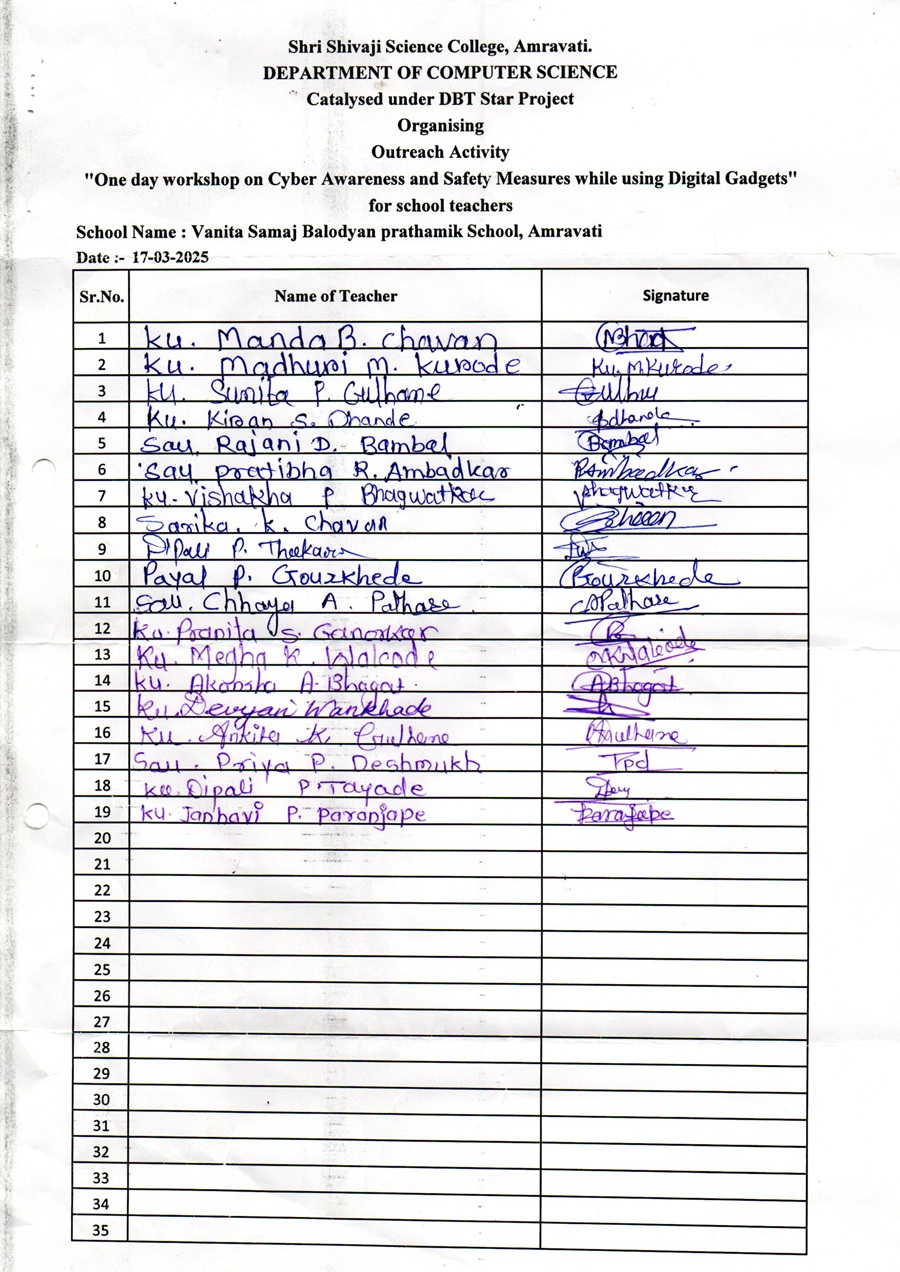 Shri Shivaji Science College, Amravati.
DEPARTMENT OF COMPUTER SCIENCE
Catalysed under DBT Star Project
Organising
Outreach Activity
"One day workshop on Cyber Awareness and Safety Measures while using Digital Gadgets"
for school teachers
School Name : Vanita Samaj Balodyan prathamik School, Amravati
Date :- 17-03-2025
Sr.No. Name of Teacher Signature
1 Ku. Manda B. Chavan
2 Ku. Madhuri M. Kurode Ku. M Kurode
3 Ku. Sunita P. Gulhane
4 Ku. Kiran S. Dhande
5 Sau. Rajani D. Bambal Bambal
6 Sau. Pratibha R. Ambadkar
7 Ku. Vishakha P Bhagwatkar
8 Sarika. K. Chavan
9 Dipali P.
10 Payal P. Gourkhede Gourkhede
11 Sau. Chhaya A. Pathare Pathare
12 Ku. Pranita S. Ganorkar
13 Ku. Megha K. Walcode
14 Ku. Akansha A. Bhagat ABhagat
15 Ku. Devyani Wankhade
16 Ku. Ankita K. Gulhane
17 Sau. Priya P. Deshmukh
18 Ku. Dipali P. Tayade
19 Ku. Janhavi P. Paranjape
20
21
22
23
24
25
26
27
28
29
30
31
32
33
34
35